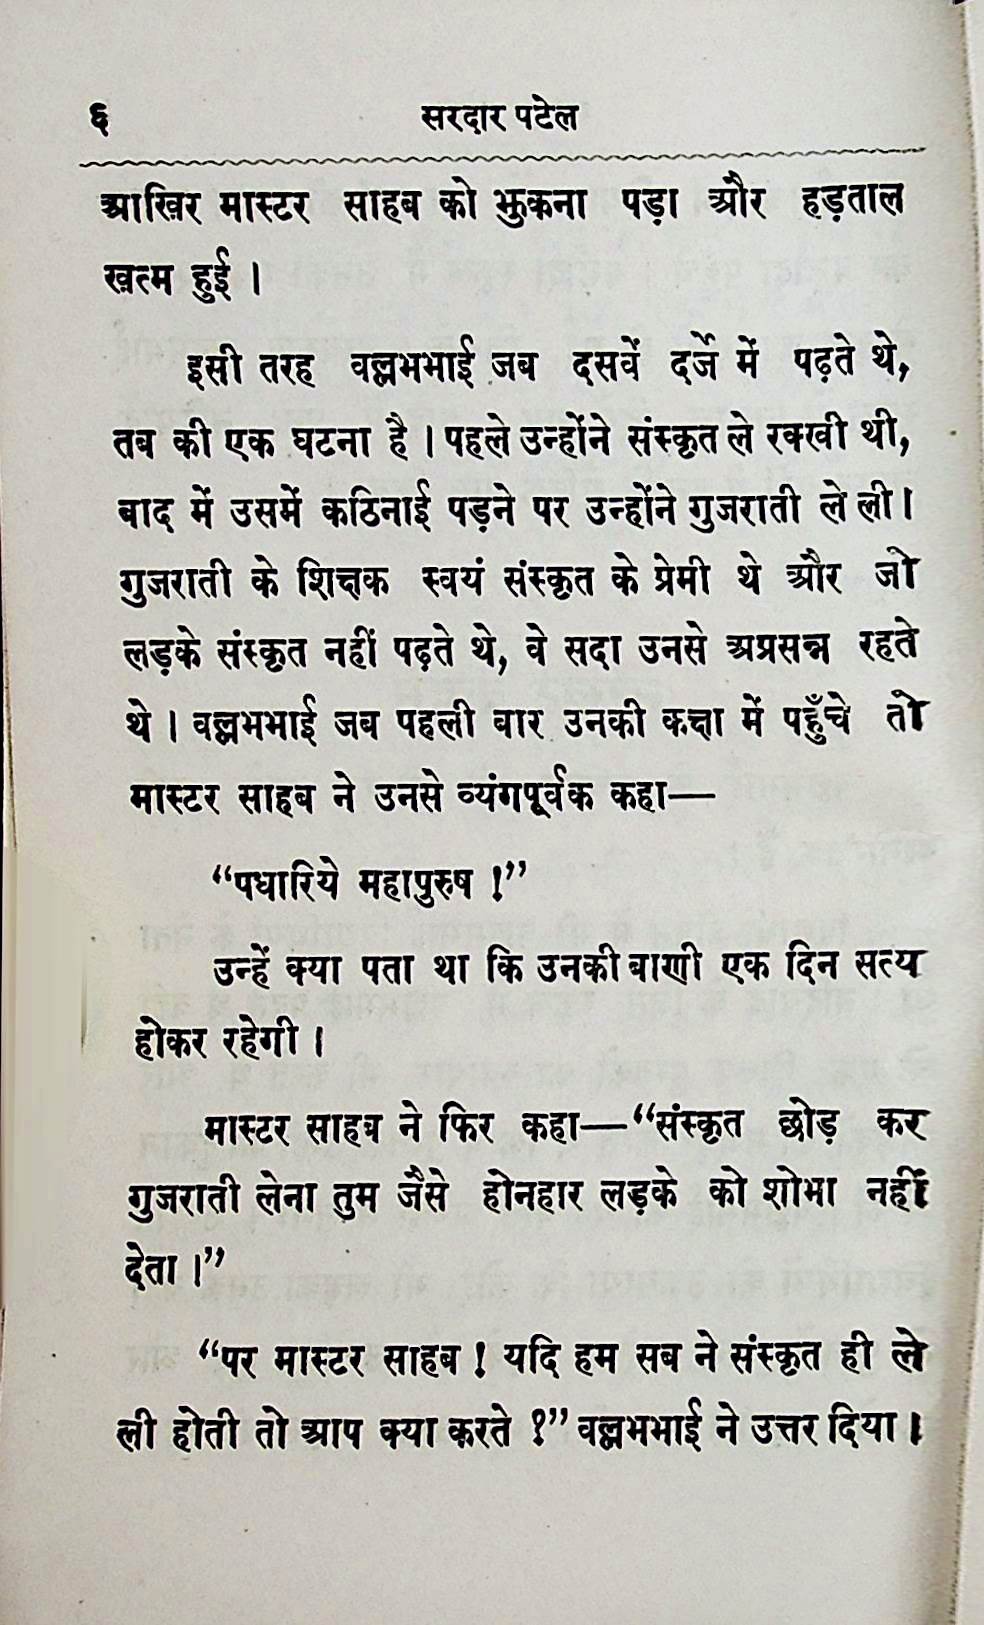 ६ सरदार पटेल
आखिर मास्टर साहब को झुकना पड़ा और हड़ताल
खत्म हुई ।
इसी तरह वल्लभभाई जब दसवें दर्जे में पढ़ते थे,
तब की एक घटना है । पहले उन्होंने संस्कृत ले रक्खी थी,
बाद में उसमें कठिनाई पड़ने पर उन्होंने गुजराती ले ली ।
गुजराती के शिक्षक स्वयं संस्कृत के प्रेमी थे और जो
लड़के संस्कृत नहीं पढ़ते थे, वे सदा उनसे अप्रसन्न रहते
थे । वल्लभभाई जब पहली बार उनकी कक्षा में पहुँचे तो
मास्टर साहब ने उनसे व्यंगपूर्वक कहा—
“पधारिये महापुरुष !”
उन्हें क्या पता था कि उनकी बाणी एक दिन सत्य
होकर रहेगी ।
मास्टर साहब ने फिर कहा—“संस्कृत छोड़ कर
गुजराती लेना तुम जैसे होनहार लड़के को शोभा नहीं
देता ।”
“पर मास्टर साहब ! यदि हम सब ने संस्कृत ही ले
ली होती तो आप क्या करते ?” वल्लभभाई ने उत्तर दिया ।